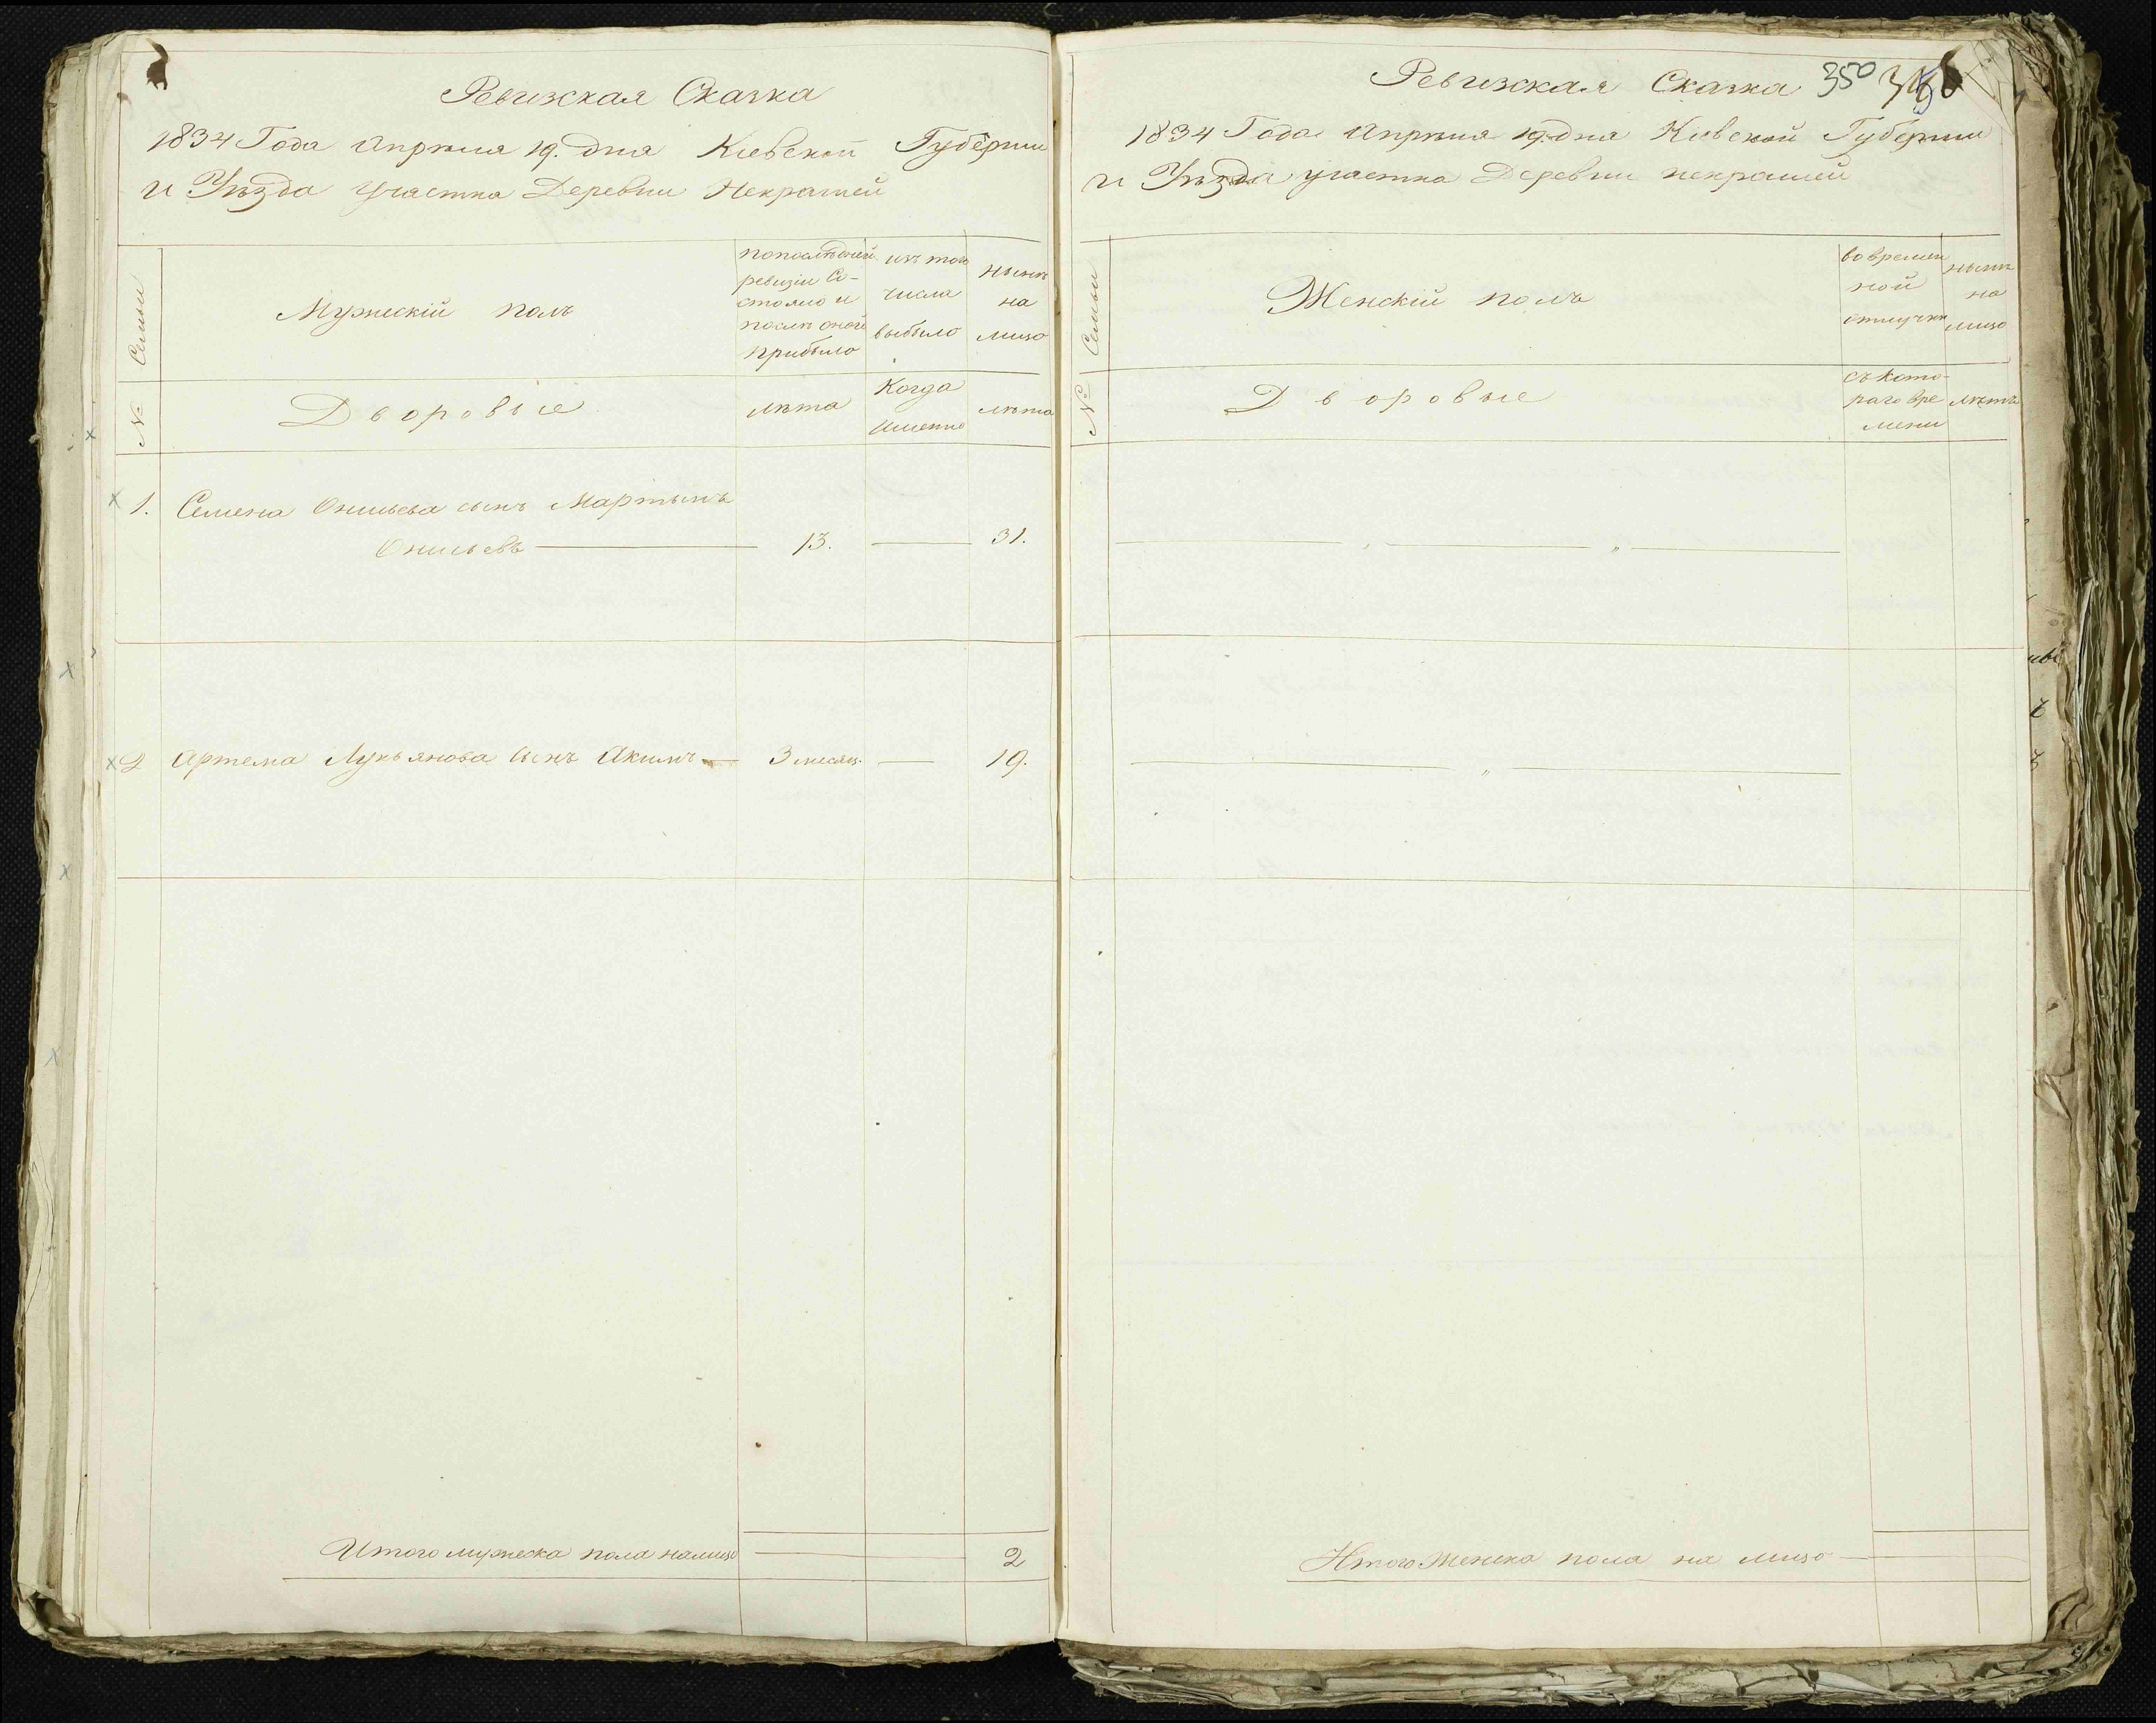 Ревизская Сказка
1834 Года Апрѣля 19. дня Кіевской Губерніи
и Уѣзда участка Деревни Некрашей
№ Семьи
Мужескій полъ
по послѣдней
ревизіи Со-
стояло и
послѣ оной
прибыло
изъ того
числа
выбыло
нынѣ
на
лицо
Дворовые
лѣта
Когда
именно
лѣта
1. Семена сынъ Мартынъ
13. 31.
2 Артема Лукьянова сынъ Акимъ 3 месяц. 19.
Итого мужеска пола налицо 2
Ревизская Сказка 350
1834 Года Апрѣля 19. дня Кіевской Губерніи
и Уѣзда участка Деревни некрашей
№ Семьи
Женскій полъ
во времен
ной
отлучкѣ
нынѣ
на
лицо
Дворовые
съ кото-
раго вре
мени
лѣта
Итого женска пола на лицо